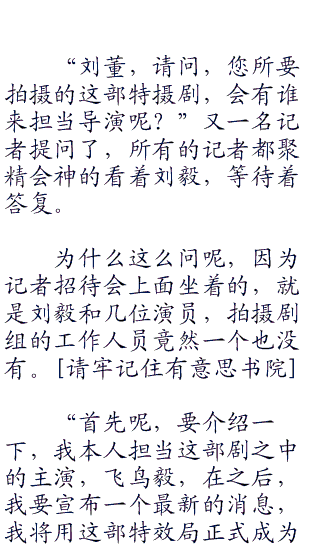 “刘董，请问，您所要
拍摄的这部特摄剧，会有谁
来担当导演呢？”又一名记
者提问了，所有的记者都聚
精会神的看着刘毅，等待着
答复。
为什么这么问呢，因为
记者招待会上面坐着的，就
是刘毅和几位演员，拍摄剧
组的工作人员竟然一个也没
有。[请牢记住有意思书院]
“首先呢，要介绍一
下，我本人担当这部剧之中
的主演，飞鸟毅，在之后，
我要宣布一个最新的消息，
我将用这部特效局正式成为